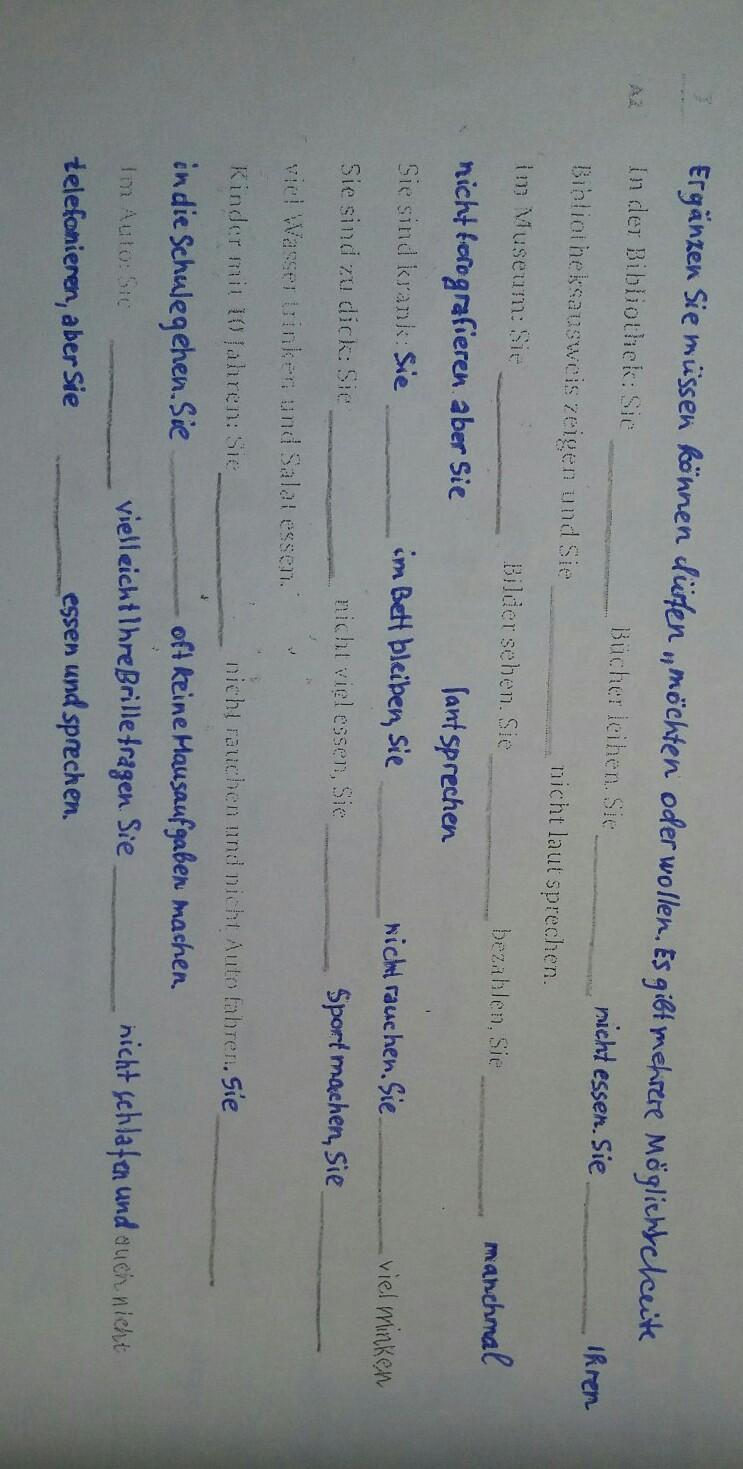 7
Ergänzen Sie müssen können dürfen „möchten oder wollen. Es gibt mehrere
A2 In der Bibliothek: Sie ______ Bücher leihen. Sie ______ nicht essen. Sie ______ Ihren
Bibliotheksausweis zeigen und Sie ______ nicht laut sprechen.
Im Museum: Sie ______ Bilder sehen. Sie ______ bezahlen, Sie ______ manchmal
nicht fotografieren aber Sie laut sprechen
Sie sind krank: Sie ______ im Bett bleiben, Sie ______ nicht rauchen. Sie ______ viel
Sie sind zu dick: Sie ______ nicht viel essen, Sie ______ Sport machen, Sie ______
viel Wasser trinken und Salat essen.
Kinder mit 10 Jahren: Sie ______ nicht rauchen und nicht Auto fahren. Sie ______
in die Schule gehen. Sie ______ oft keine Hausaufgaben machen.
Im Auto: Sie ______ vielleicht Ihre Brille tragen. Sie ______ nicht schlafen und auch nicht
telefonieren, aber Sie ______ essen und sprechen.